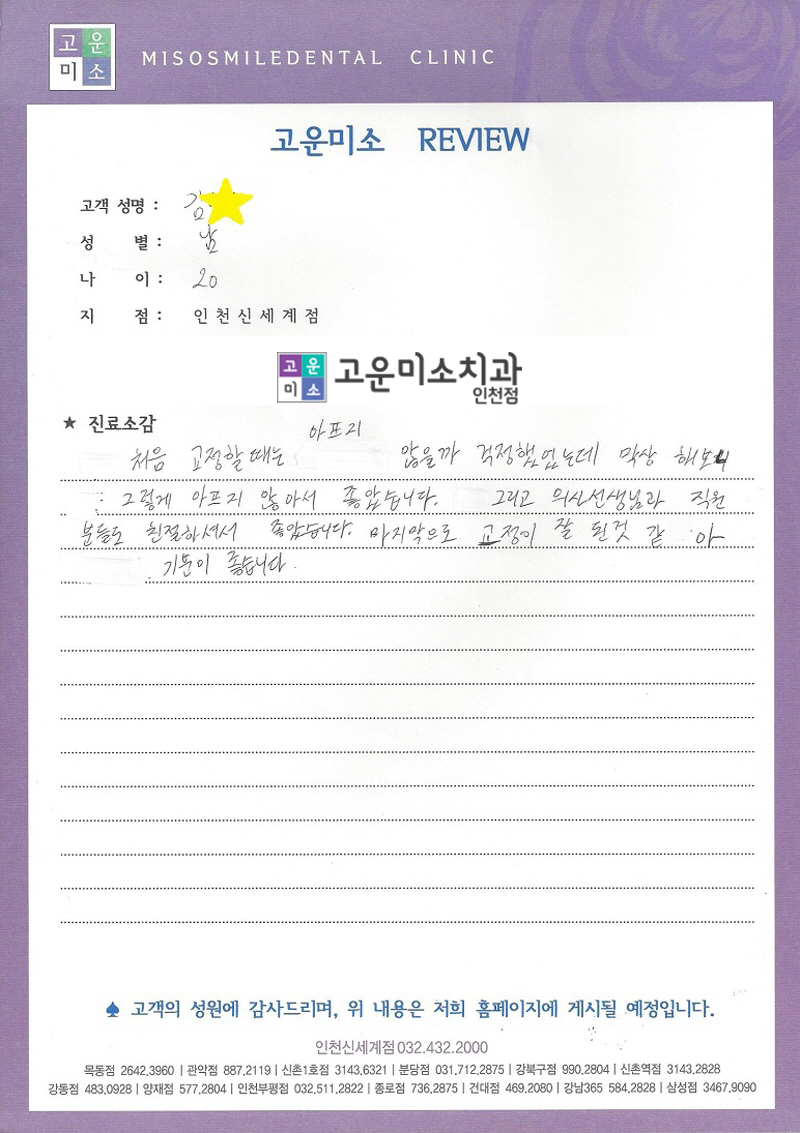 고운
미소
MISOSMILEDENTAL CLINIC
고운미소 REVIEW
고객 성명 : 김
성 별 : 남
나 이 : 20
지 점 : 인천신세계점
고운
미소
고운미소치과
인천점
★ 진료소감
아프지
처음 교정할때는 않을까 걱정했었는데 막상 해보니
그렇게 아프지 않아서 좋았습니다. 그리고 의사선생님과 직원
분들도 친절하셔서 좋았습니다. 마지막으로 교정이 잘 된것 같아
기분이 좋습니다.
♠ 고객의 성원에 감사드리며, 위 내용은 저희 홈페이지에 게시될 예정입니다.
인천신세계점 032.432.2000
목동점 2642.3960 | 관악점 887.2119 | 신촌1호점 3143.6321 | 분당점 031.712.2875 | 강북구점 990.2804 | 신촌역점 3143.2828
강동점 483.0928 | 양재점 577.2804 | 인천부평점 032.511.2822 | 종로점 736.2875 | 건대점 469.2080 | 강남365 584.2828 | 삼성점 3467.9090